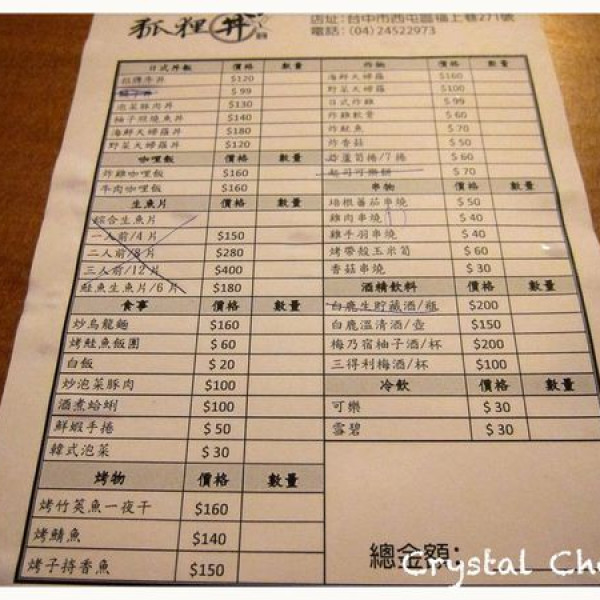 狐狸丼
店址：台中市西屯區福上巷271號
電話：(04)24522973
日式丼飯 價格 數量
招牌牛丼 $120
$99
泡菜豚肉丼 $130
柚子照燒魚丼 $140
海鮮天婦羅丼 $180
野菜天婦羅丼 $120
咖哩飯 價格 數量
炸雞咖哩飯 $160
牛肉咖哩飯 $160
生魚片 價格 數量
綜合生魚片
一人前/4片 $150
二人前/8片 $280
三人前/12片 $400
鮭魚生魚片/6片 $180
食事 價格 數量
炒烏龍麵 $160
烤鮭魚飯團 $60
白飯 $20
炒泡菜豚肉 $100
酒煮蛤蜊 $100
鮮蝦手捲 $50
韓式泡菜 $30
烤物 價格 數量
烤竹筴魚一夜干 $160
烤鯖魚 $140
烤子持香魚 $150
炸物 價格 數量
海鮮天婦羅 $160
野菜天婦羅 $100
日式炸雞 $99
炸雞軟骨 $60
炸魷魚 $70
炸香菇 $50
炸蘆筍捲/7捲 $60
起司可樂餅 $70
串物 價格 數量
培根蕃茄串燒 $50
雞肉串燒 $40
雞手羽串燒 $40
烤帶殼玉米筍 $60
香菇串燒 $30
酒精飲料 價格 數量
白鹿生貯藏酒/瓶 $200
白鹿溫清酒/壺 $150
梅乃宿柚子酒/杯 $200
三得利梅酒/杯 $100
冷飲 價格 數量
可樂 $30
雪碧 $30
總金額：
Crystal Che